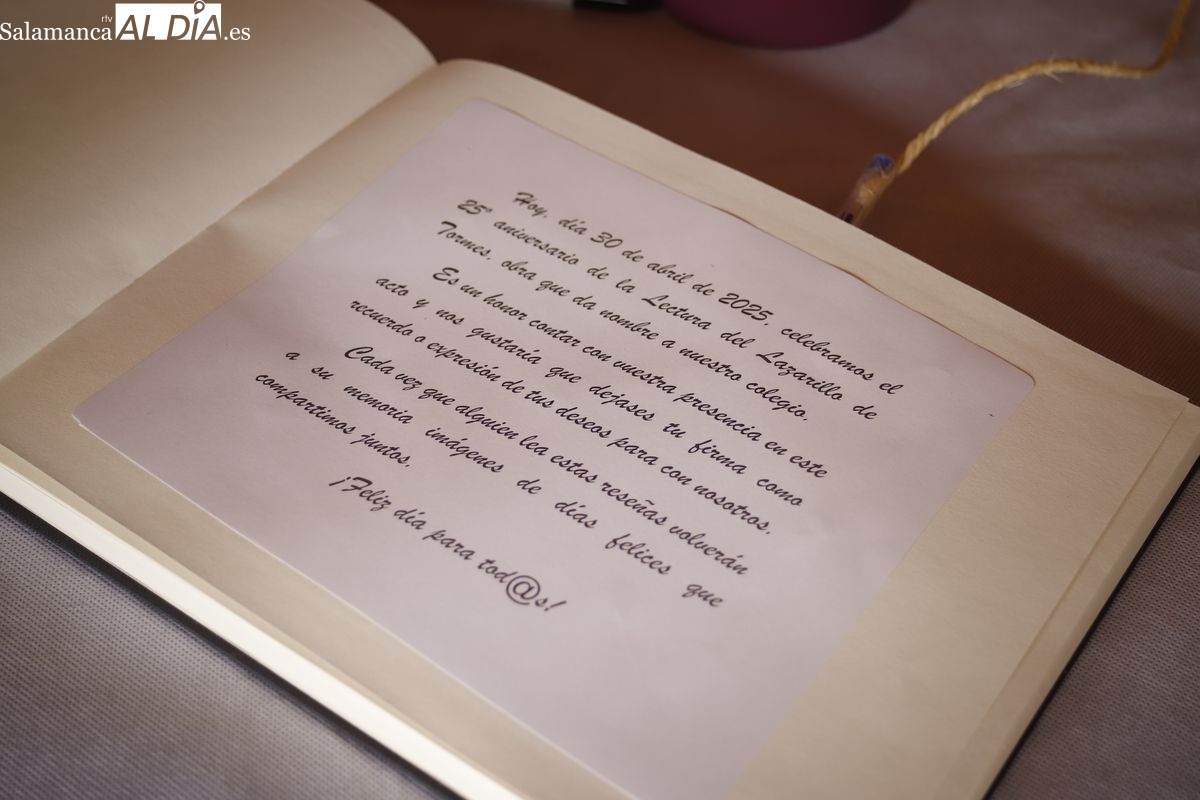 rtv
Salamanca AL DÍA .es
Hoy, día 30 de abril de 2025, celebramos el
25º aniversario de la Lectura del Lazarillo de
Tormes, obra que da nombre a nuestro colegio.
Es un honor contar con vuestra presencia en este
acto y nos gustaría que dejases tu firma como
recuerdo o expresión de tus deseos para con nosotros.
Cada vez que alguien lea estas reseñas volverán
a su memoria imágenes de días felices que
compartimos juntos.
¡Feliz día para tod@s!